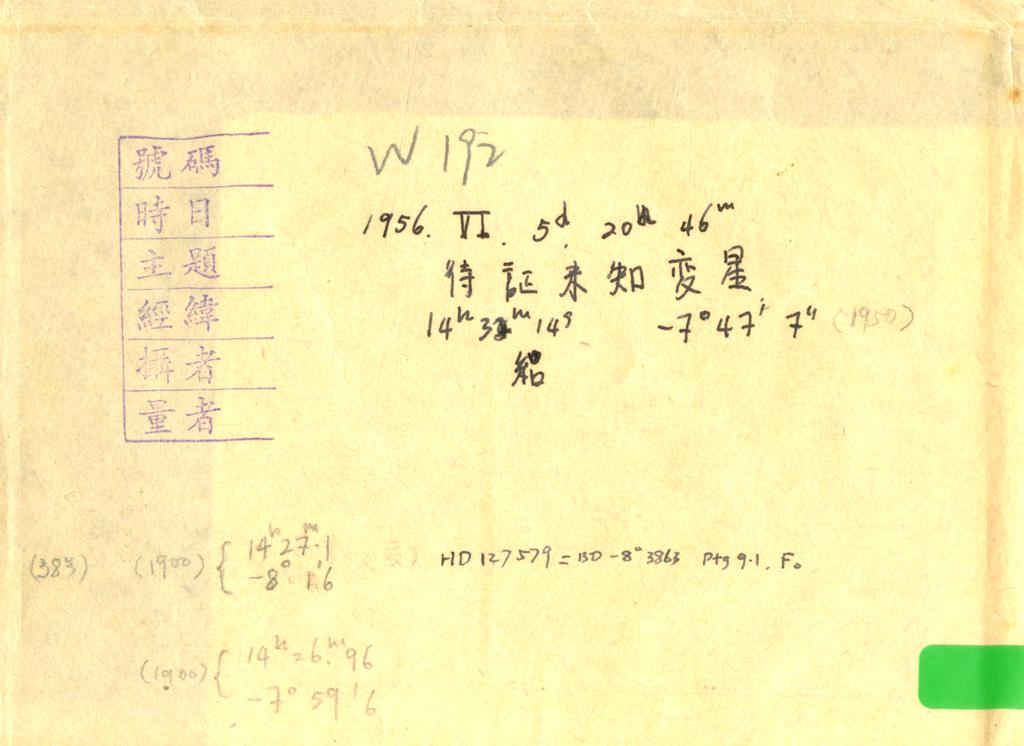 W 192
號碼
時日
主題
經緯
攝者
量者
1956. VI. 5d. 20h 46m
待証未知変星
14h 32m 14s -7° 47' 7" (1950)
(383) (1900) { 14h 27m.1 HD 127579 = BD -8° 3863 Ptg 9.1, F0
-8° 1.'6
(1900) { 14h 26m.96
-7° 59.'6